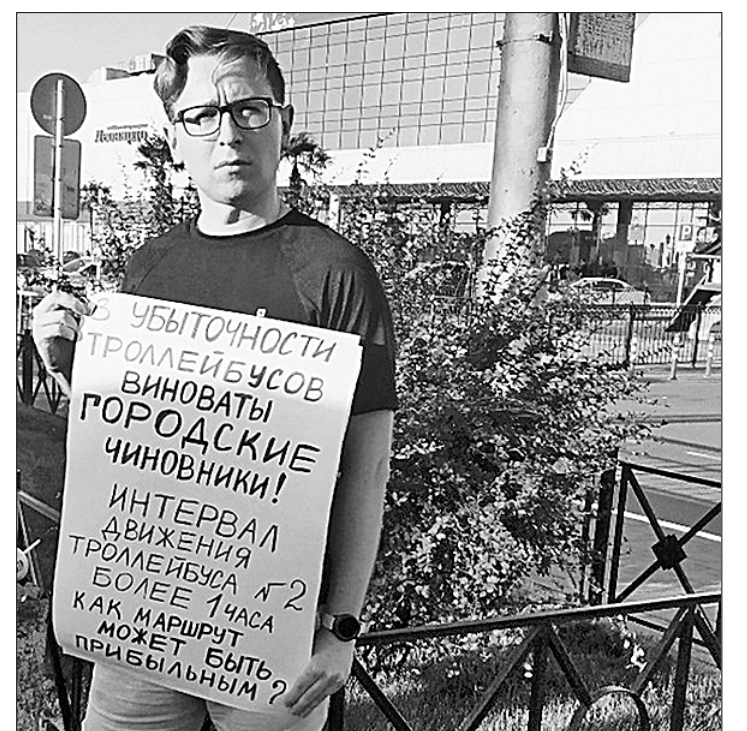 В УБЫТОЧНОСТИ
ТРОЛЛЕЙБУСОВ
ВИНОВАТЫ
ГОРОДСКИЕ
ЧИНОВНИКИ!
ИНТЕРВАЛ
ДВИЖЕНИЯ
ТРОЛЛЕЙБУСА №2
БОЛЕЕ 1 ЧАСА
КАК МАРШРУТ
МОЖЕТ БЫТЬ
ПРИБЫЛЬНЫМ?
P